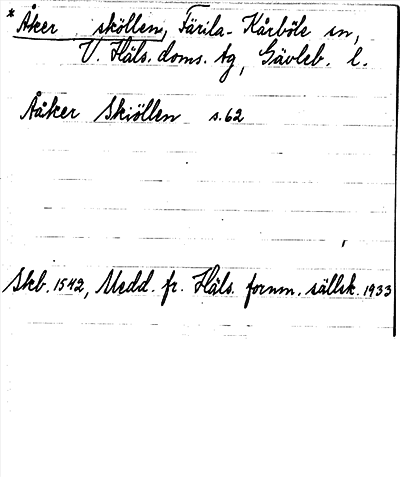 * Åker sköllen, Färila-Kårböle sn,
V. Häls. doms. tg, Gävleb. l.
Aåker Skiöllen s. 62
Skb. 1542, Medd. fr. Häls. fornm. sällsk. 1933